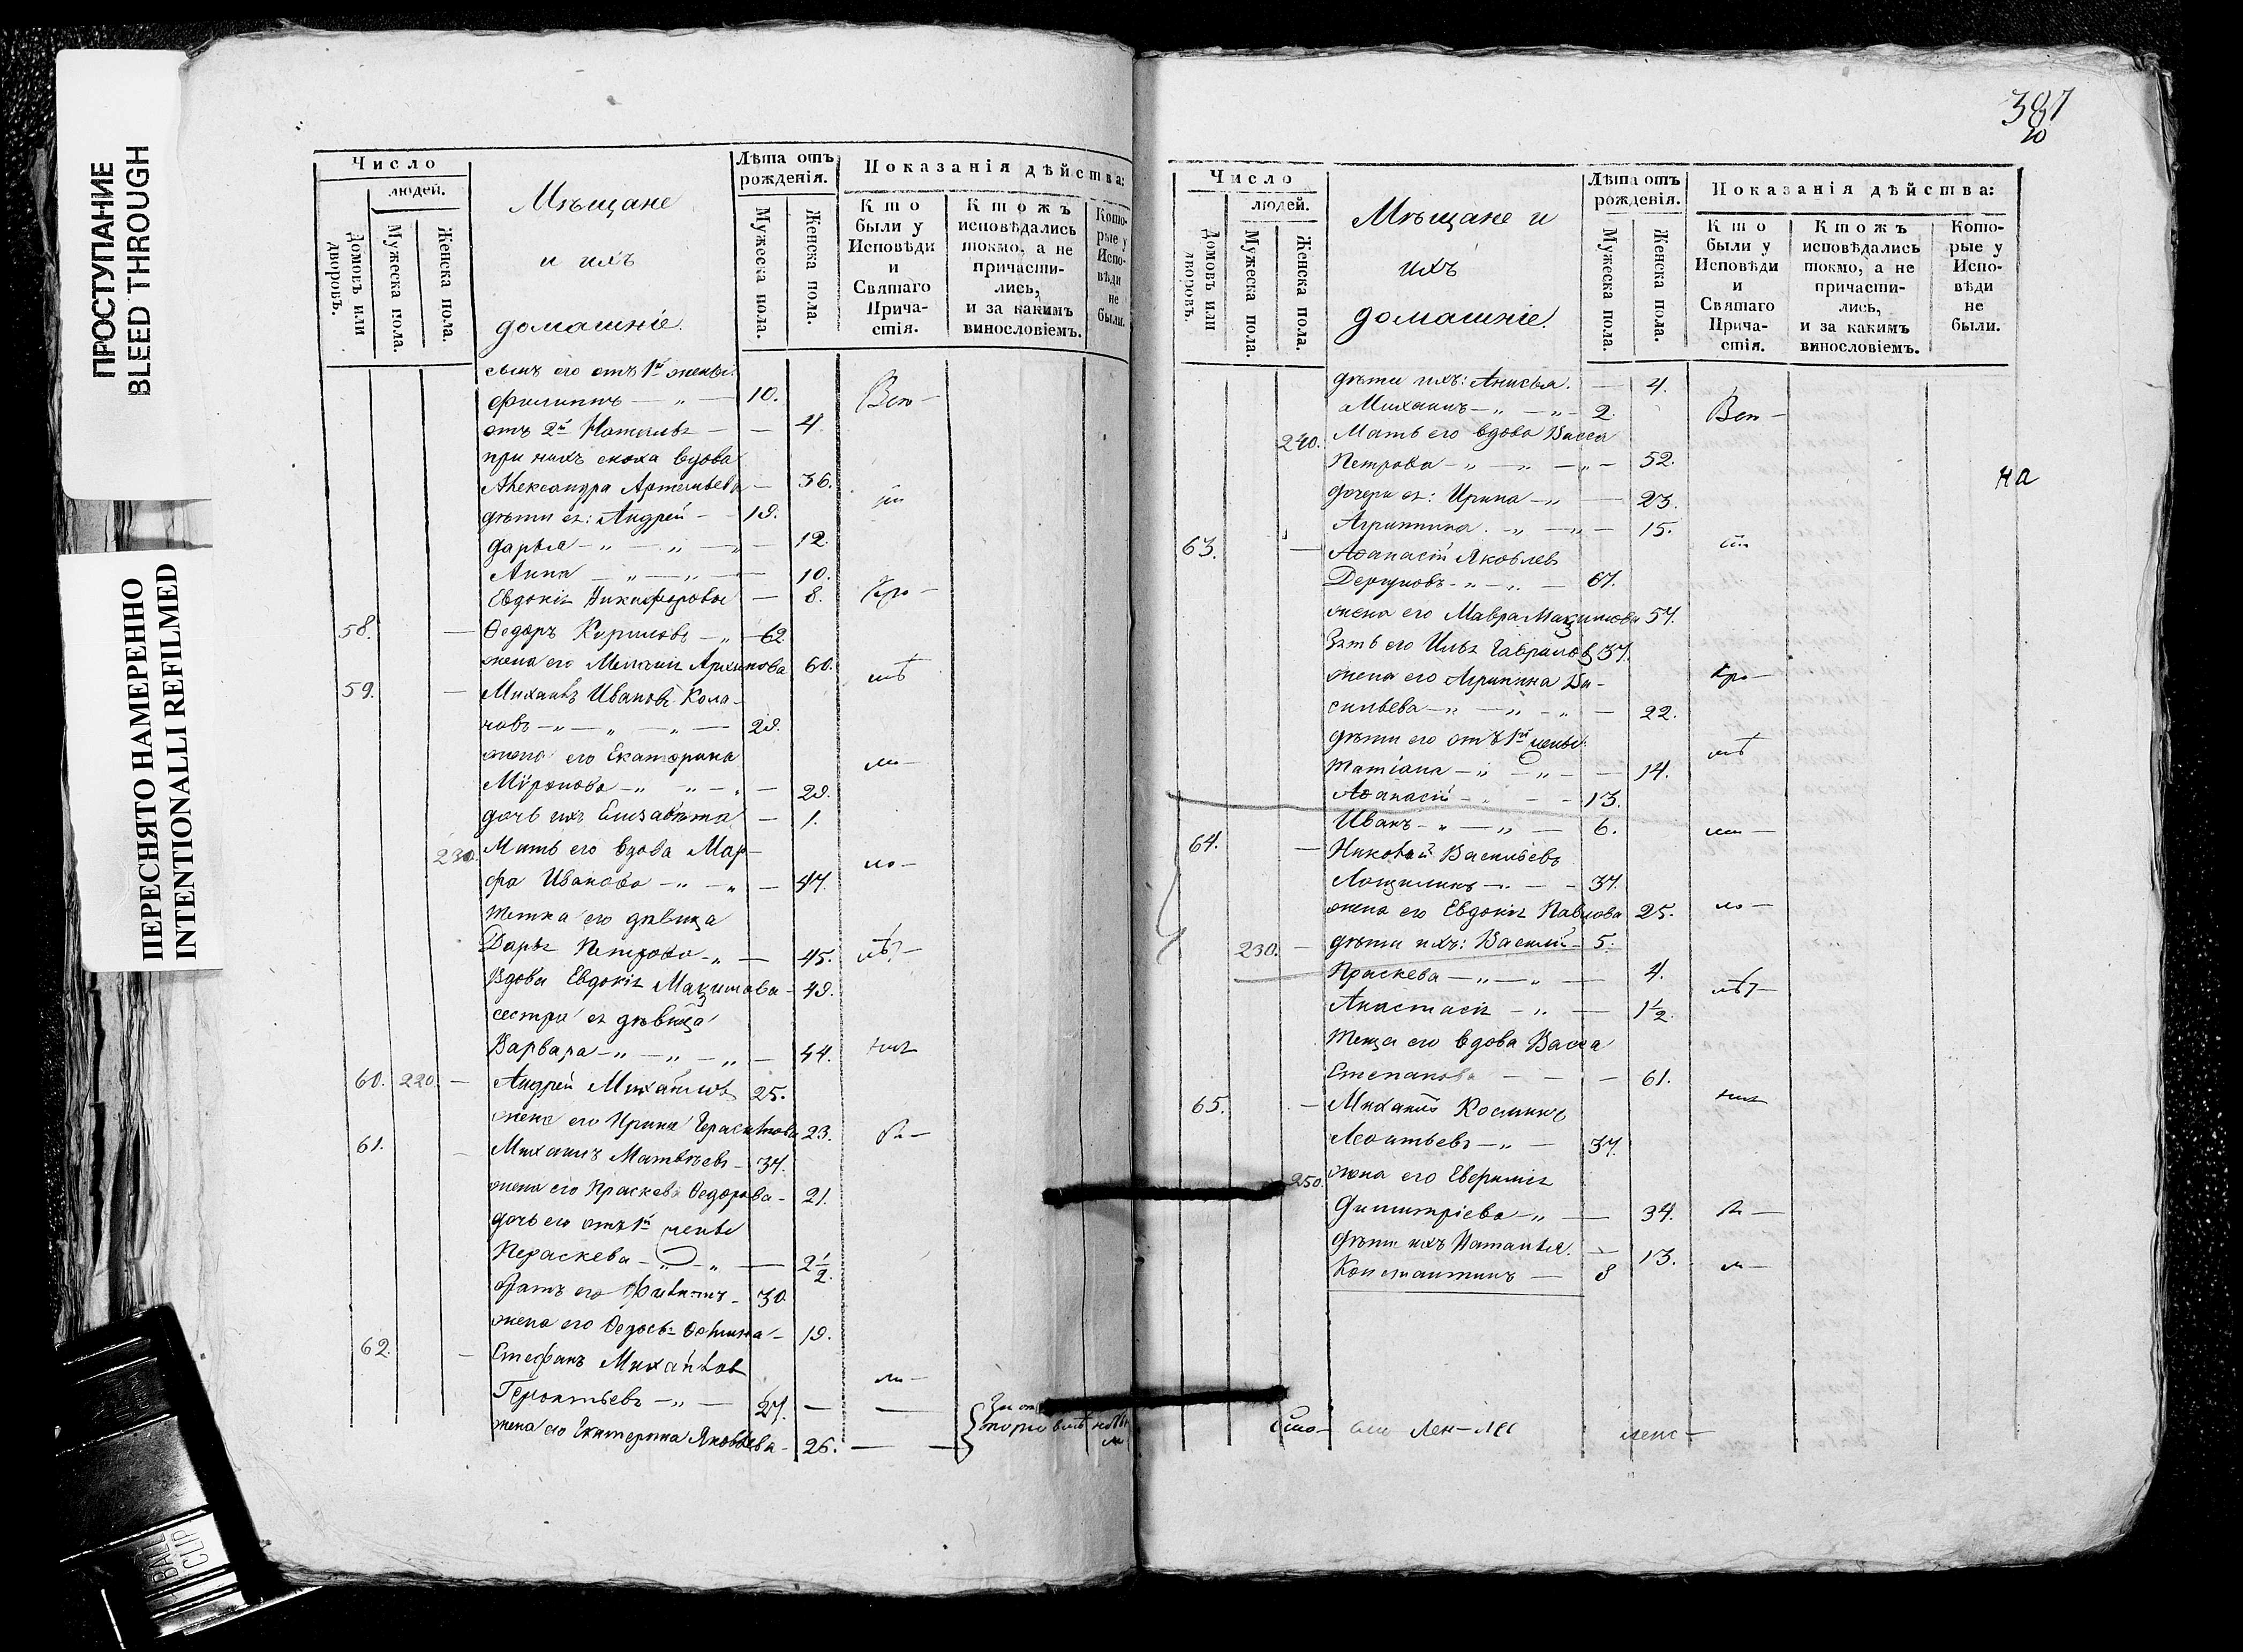 ПРОСТУПАНИЕ
BLEED THROUGH
ПЕРЕСНЯТО НАМЕРЕННО
INTENTIONALLI REFILMED
BALL
CLIP
Число
людей.
Домовъ или дворовъ.
Мужеска пола.
Женска пола.
Мѣщане
и ихъ
домашніе.
Лѣта отъ рожденія.
Мужеска пола.
Женска пола.
Показанія дѣйства:
Кто были у Исповѣди и Святаго Прича-стія.
Ктожъ исповѣдались токмо, а не причасти-лись, и за какимъ винословіемъ.
Кото-рые у Испо-вѣди не были.
сынъ его отъ 1й жены:
Филиппъ — „ — 10.
отъ 2й Наталья — — 4.
при нихъ сноха вдова
Александра Артемьева — 36.
дѣти ея: Андрей — 19.
Дарья — „ — „ — 12.
Анна — „ — „ — 10.
Евдокія Никифоровы — 8.
58. — Ѳедоръ Кириловъ — „ — 62
жена его Меланія Архипова 60.
59. — Михаилъ Ивановъ Кола-
човъ — „ — „ — 29.
жена его Екатерина
Мѵронова — „ — „ — 29.
дочь ихъ Елизавѣта — 1.
230. Мать его вдова Мар-
фа Иванова — „ — „ — 47.
тетка его дѣвица
Дарья Петрова — „ — 45.
Вдова Евдокія Маѯимова — 49.
сестра ея дѣвица
Варвара — „ — „ — „ — 44.
60. 220. — Андрей Михайловъ 25.
жена его Ирина Герасимова 23.
61. Михаилъ Матвѣевъ — 37.
жена его Праскева Ѳедорова — 21.
дочь его отъ 1й жены
Параскева — „ — „ — 2 1/2.
братъ его Филиппъ — 30.
жена его Ѳедосья — 19.
62. — Стефанъ Михайловъ
Геронтьевъ — „ — 27. —
жена его Екатерина Яковлева — 26. — —
387
20
Число
людей.
Домовъ или дворовъ.
Мужеска пола.
Женска пола.
Мѣщане и
ихъ
домашніе.
Лѣта отъ рожденія.
Мужеска пола.
Женска пола.
Показанія дѣйства:
Кто были у Исповѣди и Святаго Прича-стія.
Ктожъ исповѣдались токмо, а не причасти-лись, и за какимъ винословіемъ.
Кото-рые у Испо-вѣди не были.
дѣти ихъ: Анисья. — 4.
Михаилъ — „ — „ — 2.
240. Мать его вдова Васса
Петрова — „ — „ — „ — 52.
дочери ея: Ирина — „ — 23.
Агрипина. — „ — „ — 15.
на
63. — Аѳанасій Яковлевъ
Дергуновъ — „ — „ — 67.
жена его Мавра Маѯимова 57.
Зять его Илья Гавриловъ 37.
жена его Агрипина Ва-
сильева — „ — „ — „ — 22.
дѣти его отъ 1й жены:
Татіана — „ — „ — 14.
Аѳанасій — „ — — 13.
Иванъ — „ — „ — 6.
64. — Николай Васильевъ
Лощилинъ — „ — — 37.
жена его Евдокія Павлова 25.
230. — дѣти ихъ: Василій — 5.
Праскева — „ — „ — 4.
Анастасія — „ — 1 1/2.
Теща его вдова Васса
Степанова — — — 61.
65. — Михаилъ Косминъ
Леонтьевъ — „ — 37.
250. жена его Еверпиія
Димитріева — „ — 34.
дѣти ихъ Наталья. — 13.
Константинъ — 8